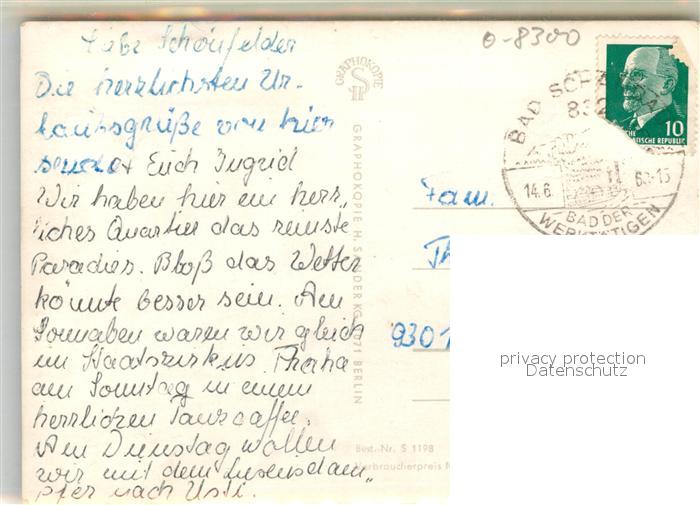 Liebe Schönfelder
Die herzlichsten Ur-
laubsgrüße von hier
sendet Euch Ingrid
Wir haben hier ein herr-
liches Quartier das reinste
Paradies. Bloß das Wetter
könnte besser sein. Am
Sonnabend waren wir gleich
im Staatszirkus Praha
am Sonntag in einem
herrlichen Tanzcaffee.
Am Dienstag wollen
wir mit dem Luxusdam-
pfer nach Usti.
GRAPHOKOPIE
GRAPHOKOPIE H. SANDER KG 1071 BERLIN
Best.-Nr. S 1198
Verbraucherpreis M
0-8300
BAD SCHANDA
832
14.6.
BAD DER
WERKTÄTIGEN
10
TISCHE REPUBLIK
Fam.
Th
9301
privacy protection
Datenschutz